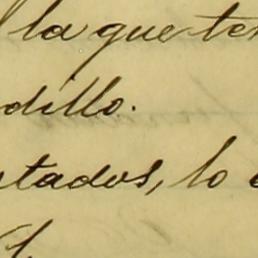 la que ten
dillo.
tados, lo